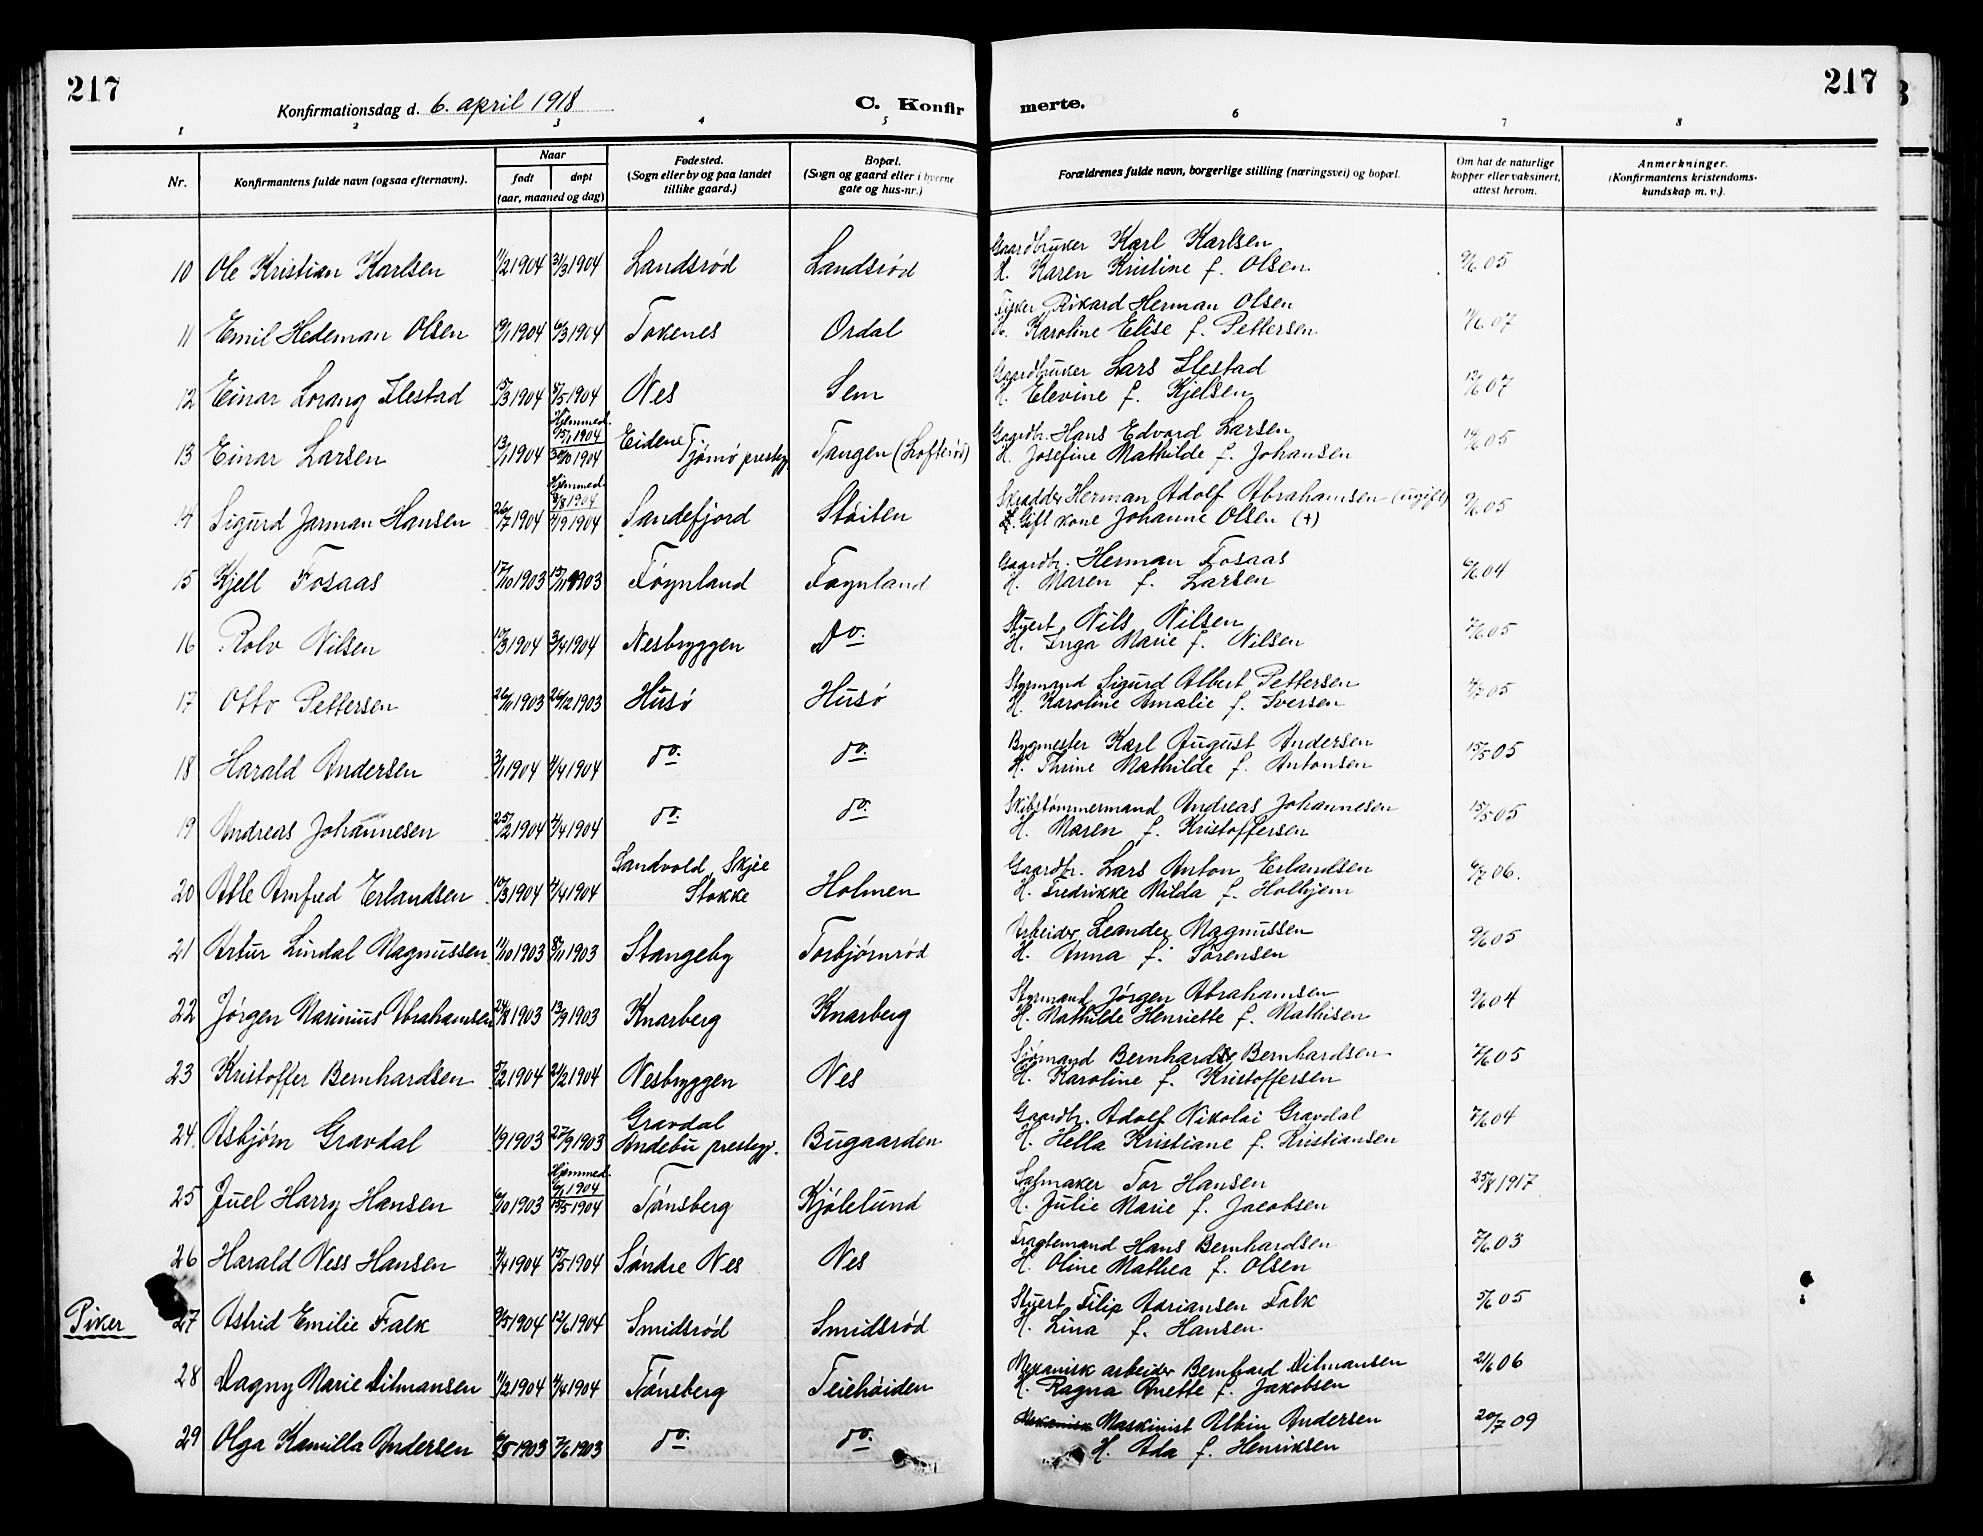 217
Konfirmationsdag d. 6. april 1918
C. Konfir merte.
217
1 2 3 4 5 6 7 8
Nr.
Konfirmantens fulde navn (ogsaa efternavn).
Naar
født døpt
(aar, maaned og dag)
Fødested.
(Sogn eller by og paa landet
tillike gaard.)
Bopæl.
(Sogn og gaard eller i byerne
gate og hus-nr.)
Forældrenes fulde navn, borgerlige stilling (næringsvei) og bopæl.
Om hat de naturlige
kopper eller vaksinert,
attest herom.
Anmerkninger.
(Konfirmantens kristendoms-
kundskap m. v.)
Gaardbruker Karl Karlsen
10 Ole Kristian Karlsen 11/2 1904 31/3 1904 Landsrød Landsrød H. Karen Kristine f. Olsen 9/6 05
Fisker Rikard Herman Olsen
11 Emil Hedeman Olsen 19/1 1904 6/3 1904 Tokenes Ordal H. Karoline Elise f. Pettersen
Gaardbruker Lars Ilestad
12 Einar Lorang Ilestad 15/3 1904 8/5 1904 Nes Sem H. Elevine f. Kjelsen 12/6 07
Hjemmed. 15/1 1904
Gaardbr. Hans Edvard Larsen
13 Einar Larsen 13/1 1904 30/10 1904 Eidene Tjømø prestegj. Tangen (Lofterød) H. Josefine Mathilde f. Johansen 14/6 05
Hjemmed. 8/8 1904
Skrædder Herman Adolf Abrahamsen (ugift)
14 Sigurd Jarman Hansen 26/7 1904 4/9 1904 Sandefjord Støiten Gift kone Johanne Olsen (+) 9/6 05
Gaardbr. Herman Fosaas
15 Kjell Fosaas 17/10 1903 15/11 1903 Føynland Føynland H. Maren f. Larsen 6/6 04
Stuert Nils Nilsen
16 Rolv Nilsen 10/3 1904 3/4 1904 Nesbryggen Do. H. Inga Marie f. Nilsen 7/6 05
Styrmand Sigurd Albert Pettersen
17 Otto Pettersen 26/11 1903 26/12 1903 Husø Husø H. Karoline Amalie f. Iversen
Bygmester Karl August Andersen
18 Harald Andersen 3/1 1904 4/4 1904 do. do. H. Thrine Mathilde f. Antonsen 15/5 05
Skibstømmermand Andreas Johannesen
19 Andreas Johannesen 25/2 1904 4/4 1904 do. do. H. Maren f. Kristoffersen 15/5 05
Sandvold, Skjee
Gaardbr. Lars Anton Erlandsen
20 Atle Arnfred Erlandsen 10/3 1904 4/4 1904 Stokke Holmen H. Fredrikke Milda f. Holhjem 6/7 06.
Arbeider Leander Magnussen
21 Artur Lindal Magnussen 11/10 1903 8/11 1903 Stangeby Torbjørnrød H. Anna f. Sørensen 9/6 05
Styrmand Jørgen Abrahamsen
22 Jørgen Marinius Abrahamsen 24/8 1903 13/9 1903 Knarberg Knarberg H. Mathilde Henriette f. Mathisen 9/6 04
Sjømand Bernhard Bernhardsen
23 Kristoffer Bernhardsen 5/2 1904 21/2 1904 Nesbryggen Nes H. Karoline f. Kristoffersen 7/6 05
Gravdal
Gaardbr. Adolf Nikolai Gravdal
24 Asbjørn Gravdal 1/9 1903 27/9 1903 Andebu prestegj. Bugaarden H. Hella Kristiane f. Kristiansen 7/6 04
Hjemmed. 6/1 1904
Salmaker Tor Hansen
25 Juel Harry Hansen 6/10 1903 15/5 1904 Tønsberg Kjølelund H. Julie Marie f. Jacobsen 25/8 1917
Fragtemand Hans Bernhardsen
26 Harald Ness Hansen 4/4 1904 15/5 1904 Søndre Nes Nes H. Oline Mathea f. Olsen 7/6 03
Stuert Filip Adriansen Falk
Piker 27 Astrid Emilie Falk 9/5 1904 12/6 1904 Smidsrød Smidsrød H. Lina f. Hansen 5/6 05
Mekanisk arbeider Bernhard Dilmansen
28 Dagny Marie Dilmansen 11/2 1904 4/4 1904 Tønsberg Teiehøiden H. Ragna Anette f. Jakobsen 21/6 06
Mekanisk Maskinist Albin Andersen
29 Olga Kamilla Andersen 6/5 1903 7/6 1903 do. do. H. Ada f. Henriksen 20/7 09